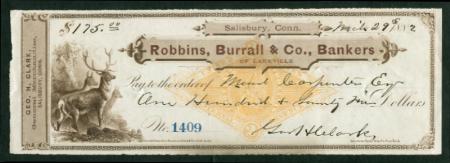 $175.00
Salisbury, Conn. Mch 29th
Robbins, Burrall & Co., Bankers
OF LAKEVILLE
Pay to the order of Carpenter Esq
One Hundred & Seventy five Dollars
No. 1409
Geo H Clark
GEO. H. CLARK,
SALISBURY, CONN.